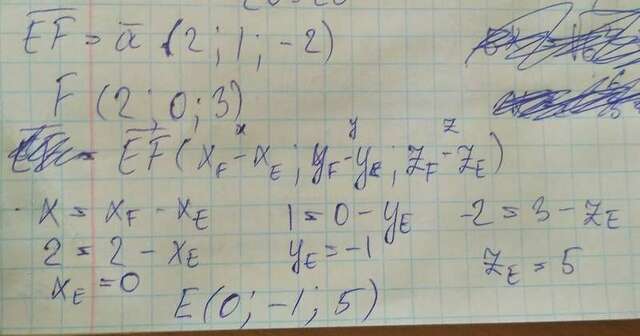 EF = a (2; 1; -2)
F (2; 0; 3)
x y z
EF (x_F - x_E; y_F - y_E; z_F - z_E)
x = x_F - x_E 1 = 0 - y_E -2 = 3 - z_E
2 = 2 - x_E y_E = -1 z_E = 5
x_E = 0 E (0; -1; 5)